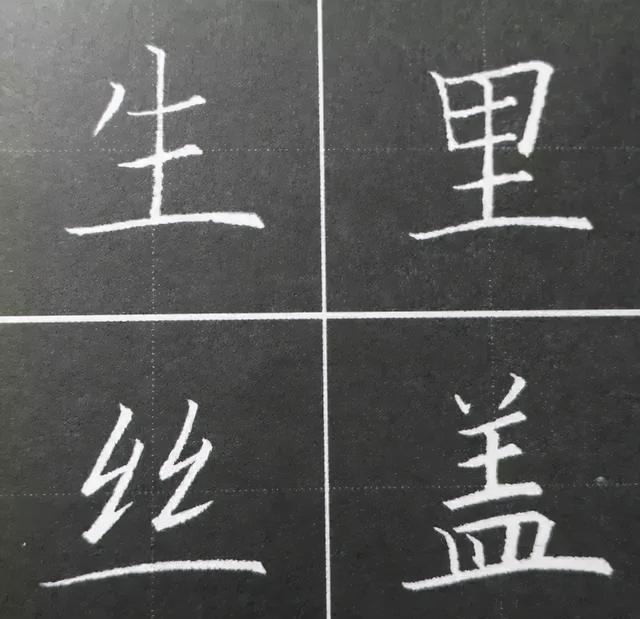 生里
丝盖